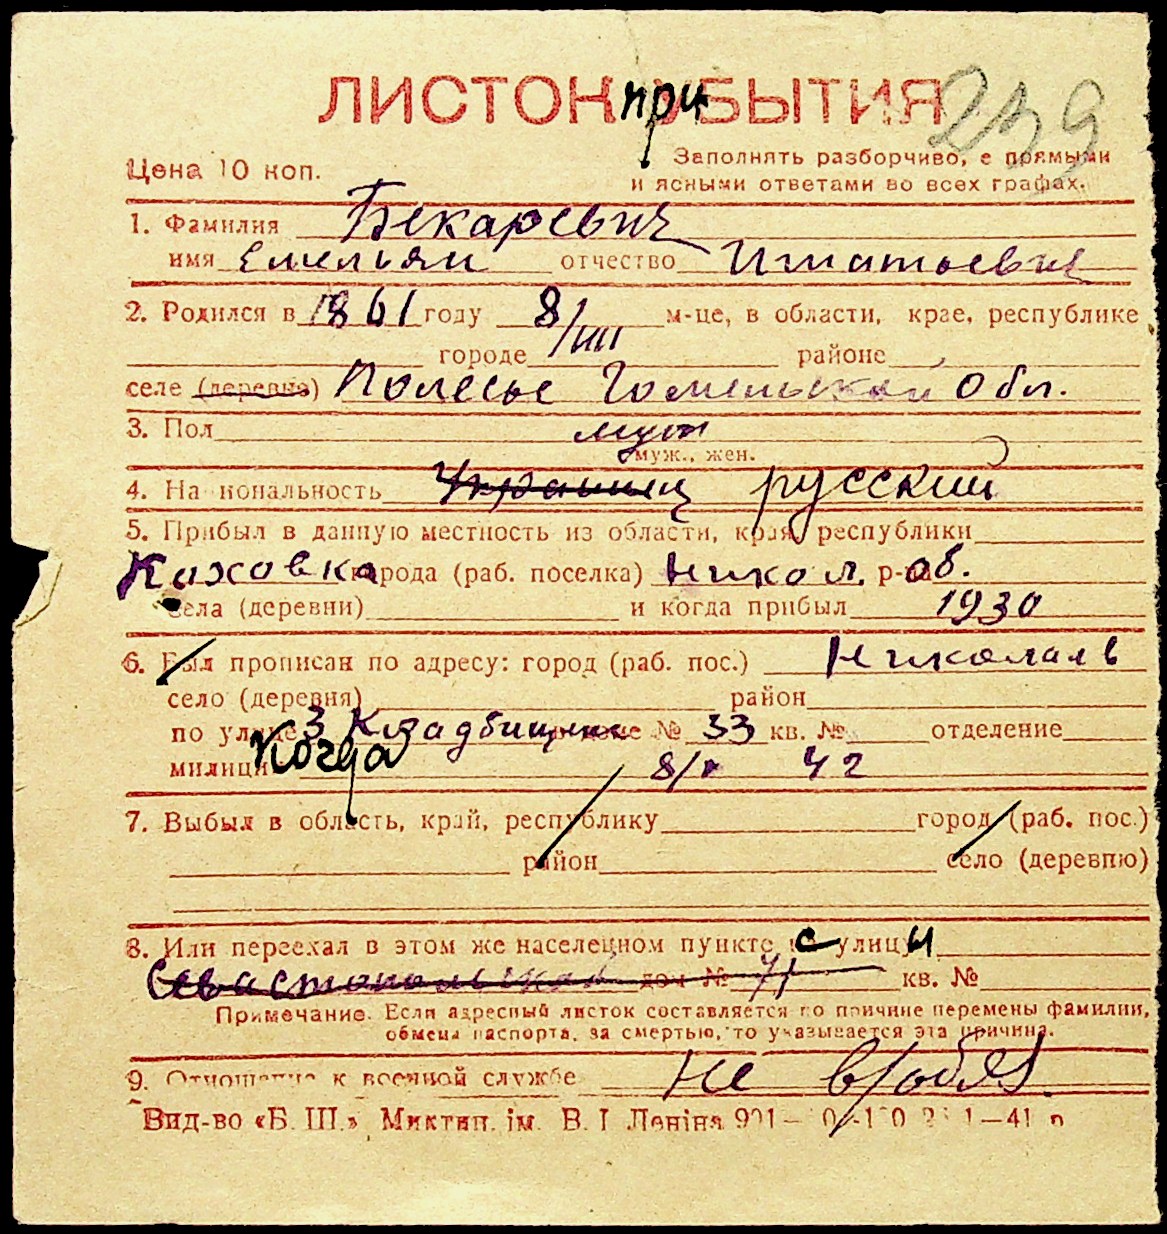 ЛИСТОК при БЫТИЯ 239
Цена 10 коп.
Заполнять разборчиво, с прямыми
и ясными ответами во всех графах.
1. Фамилия Бекаревич
имя Емельян отчество Игнатьевич
2. Родился в 1861 году 8/VIII м-це, в области, крае, республике
городе районе
селе (деревне) Полесье Гомельской Обл.
3. Пол муж
муж., жен.
4. Национальность Украинец русский
5. Прибыл в данную местность из области, края, республики
Каховка города (раб. поселка) Никол. р-на об.
села (деревни) и когда прибыл 1930
6. Был прописан по адресу: город (раб. пос.) Николаев
село (деревня) район
по улице 3 Кладбищенс доме № 33 кв. № отделение
милиции когда 8/х 42
7. Выбыл в область, край, республику город (раб. пос.)
район село (деревню)
8. Или переехал в этом же населенном пункте с улицы
Севастопольская дом № 71 кв. №
Примечание. Если адресный листок составляется по причине перемены фамилии,
обмена паспорта, за смертью, то указывается эта причина.
9. Отношение к военной службе не в/обяз.
Вид-во «Б. Ш.» Миктип. ім. В. І Леніна 901 —41 р